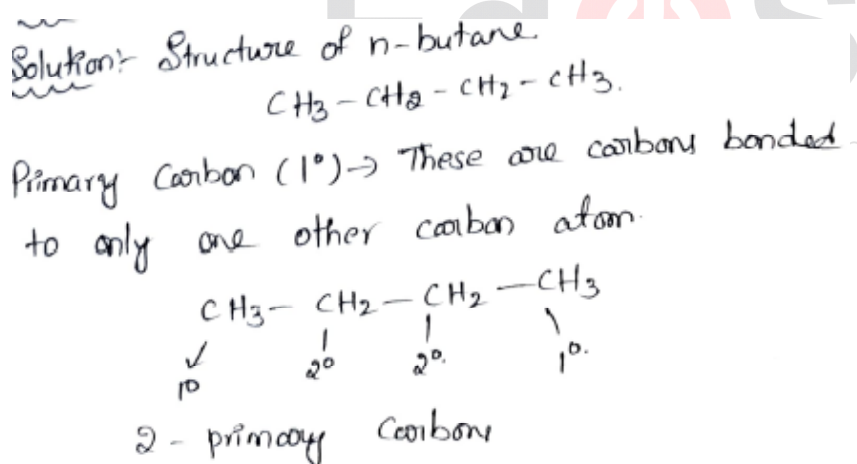 Solution:- Structure of n-butane.
CH3 - CH2 - CH2 - CH3.
Primary Carbon (1°) → These are carbons bonded
to only one other carbon atom.
CH3 - CH2 - CH2 - CH3
1° 2° 2°. 1°.
2 - primary Carbons